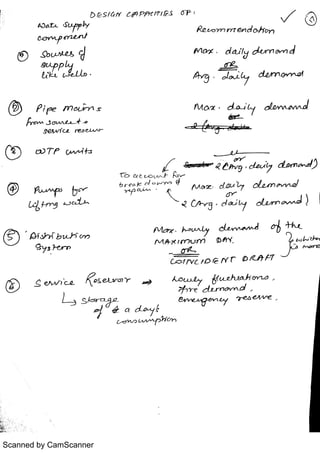 DESIGN CAPACITIES OF:
Water Supply component
Recommendation
① Sources of supply like wells.
Max. daily demand
OR
Avg. daily demand
② Pipe mains from source to service reservoir
Max. daily demand
③ WTP units
or
2 (Avg. daily demand)
④ Pumps for lifting water
To account for break down & repair
Max daily demand
or
2 (Avg. daily demand)
⑤ Distribution System
Max. hourly demand of the
MAXIMUM DAY.
OR
COINCIDENT DRAFT
whichever is more
⑥ Service Reservoir → hourly fluctuations,
fire demand,
emergency reserve.
↳ storage of a day's consumption
Scanned by CamScanner